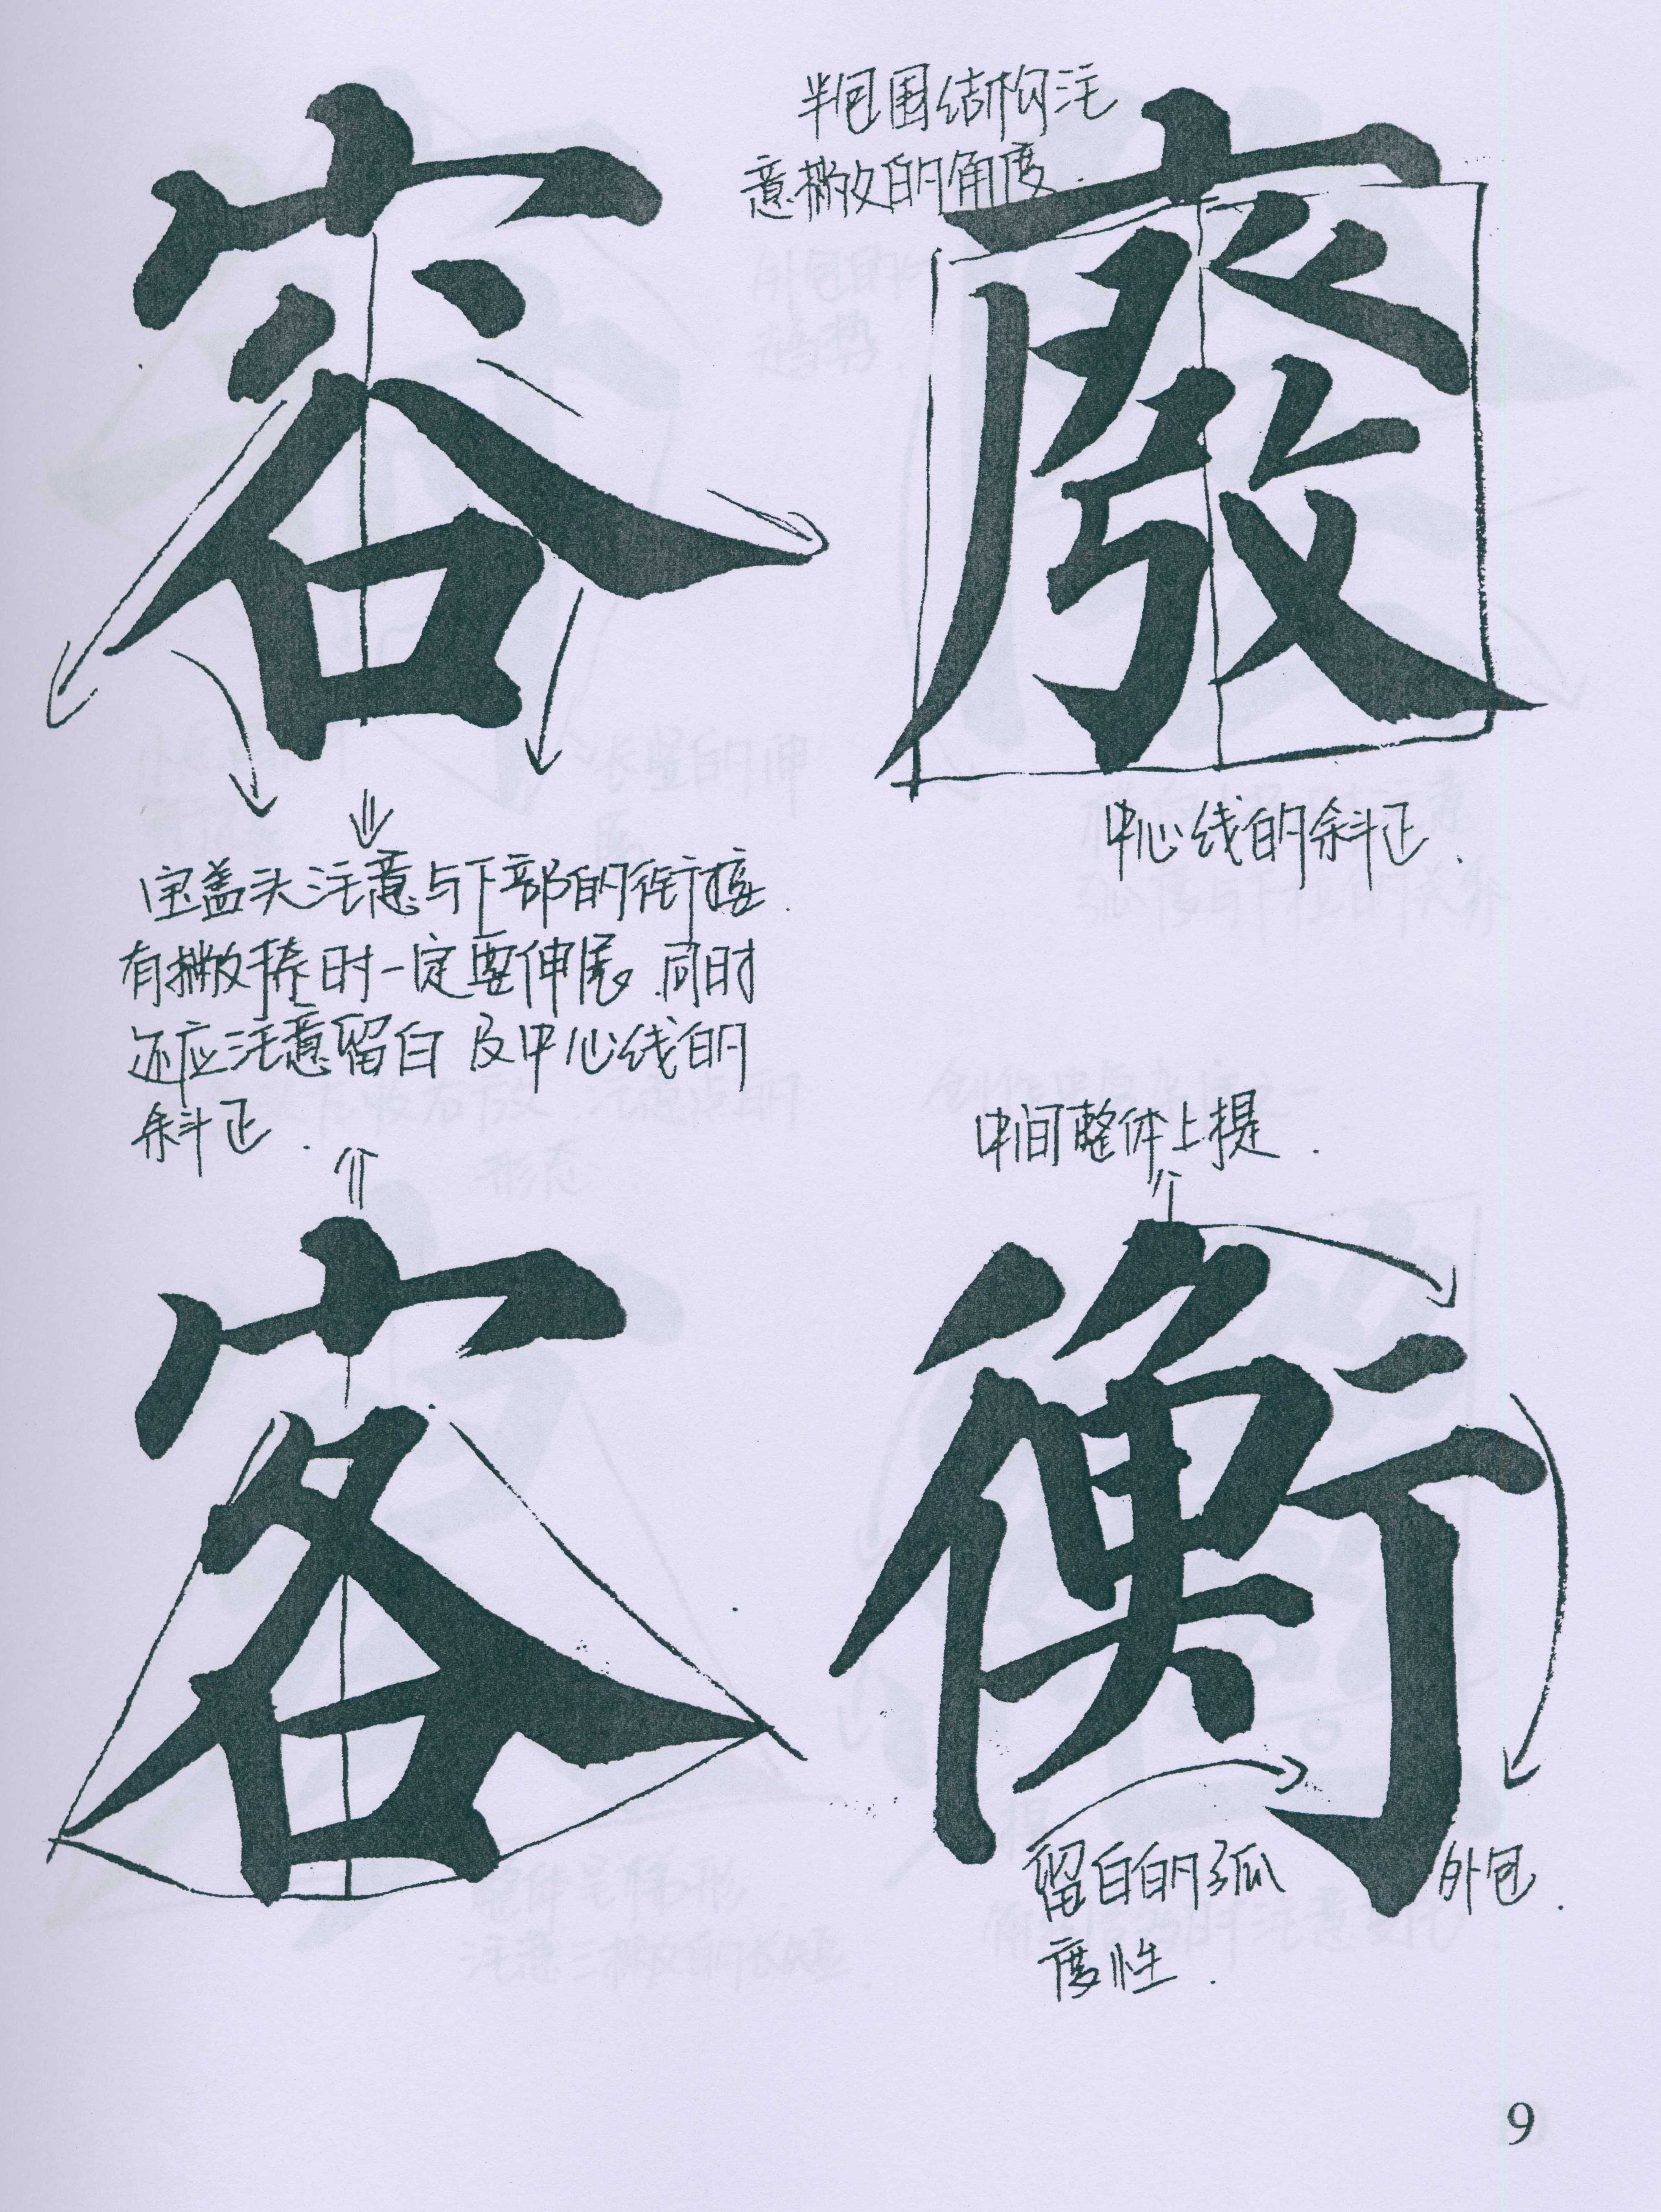 容
半包围结构注
意撇的角度.
廢
中心线的斜正.
宝盖头注意与下部的衔接.
有撇捺时一定要伸展.同时
还应注意留白及中心线的
斜正.
客
中间整体上提.
衡
留白的弧
度性.
外包.
9